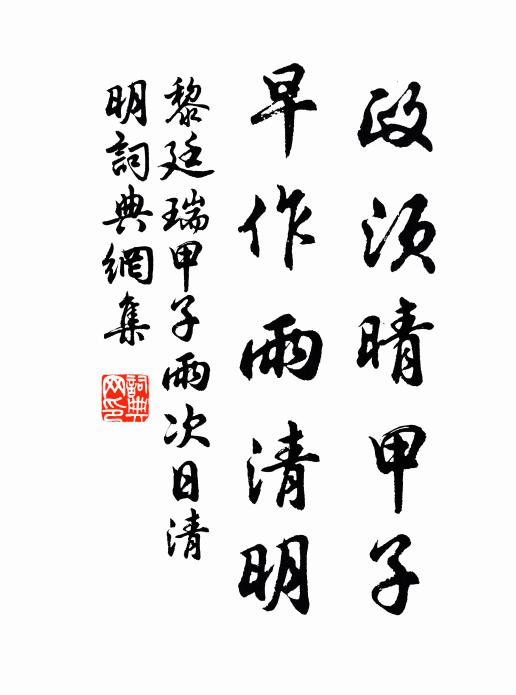 政須晴甲子
早作雨清明
黎廷瑞甲子雨次日清
明詞典網集
詞典網印